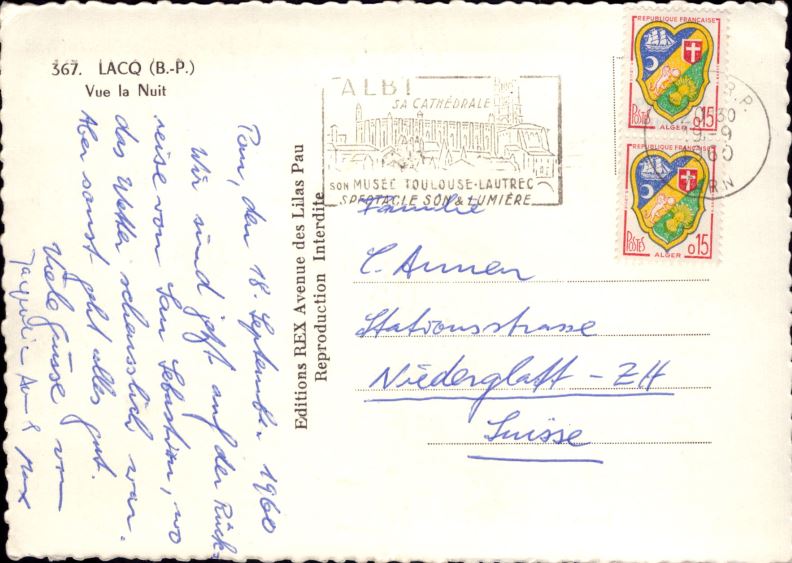 367. LACQ (B.-P.)
Vue la Nuit
den 18. September 1960
Wir sind jetzt auf der Rück-
reise von San Sebastian, wo
das Wetter scheusslich war.
Aber sonst geht alles gut.
Viele Grüsse von
Max
Editions REX Avenue des Lilas Pau
Reproduction Interdite
ALBI
SA CATHÉDRALE
SON MUSÉE TOULOUSE-LAUTREC
SPECTACLE SON & LUMIÈRE
REPUBLIQUE FRANÇAISE
POSTES 0,15
ALGER
REPUBLIQUE FRANÇAISE
POSTES 0,15
ALGER
R.P.
30
9-9
60
RN
Familie
Stationsstrasse
Niederglatt - ZH
Suisse